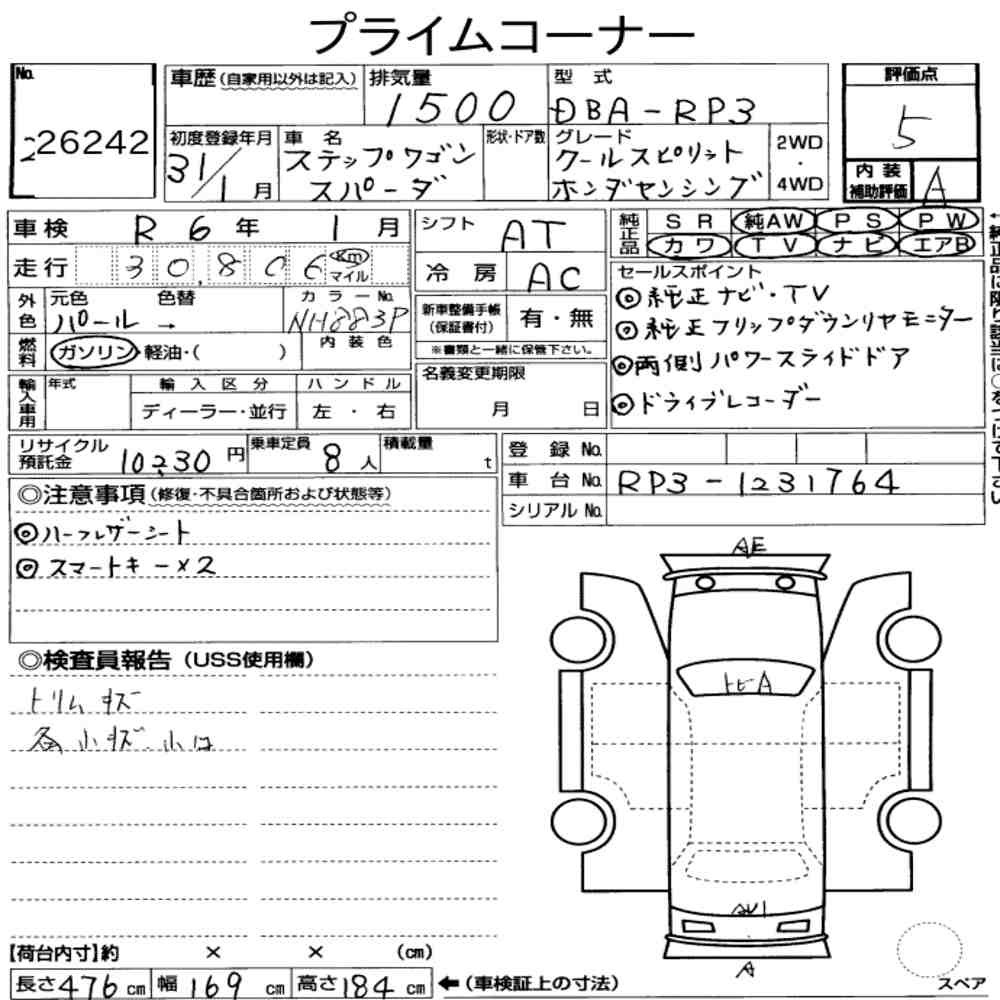 プライムコーナー
No. 226242
車歴(自家用以外は記入)
排気量 1500
型 式 DBA-RP3
評価点 5
初度登録年月 31/1月
車 名 ステップワゴン
スパーダ
形状・ドア数
グレード クールスピリット
ホンダセンシング
2WD
・
4WD
内装
補助評価 A
車検 R 6年 1月
走行 30,806 Km
マイル
シフト AT
冷 房 AC
純正品
SR 純AW PS PW
カワ TV ナビ エアB
外色 元色 パール →
色替
カラーNo. NH883P
内装色
燃料 ガソリン・軽油・( )
新車整備手帳
(保証書付)
有・無
※書類と一緒に保管下さい。
セールスポイント
◎純正ナビ・TV
◎純正フリップダウンリヤモニター
◎両側パワースライドドア
◎ドライブレコーダー
輸入車用 年式
輸入区分
ディーラー・並行
ハンドル
左・右
名義変更期限
月 日
リサイクル
預託金 10230円
乗車定員 8人
積載量 t
登 録 No.
車 台 No. RP3-1231764
シリアル No.
◎注意事項(修復・不具合箇所および状態等)
◎ハーフレザーシート
◎スマートキー×2
◎検査員報告(USS使用欄)
トリムキズ
各小キズ.小凹
AE
トビA
AU1
A
スペア
【荷台内寸】約 × × (cm)
長さ476cm 幅169cm 高さ184cm ←(車検証上の寸法)